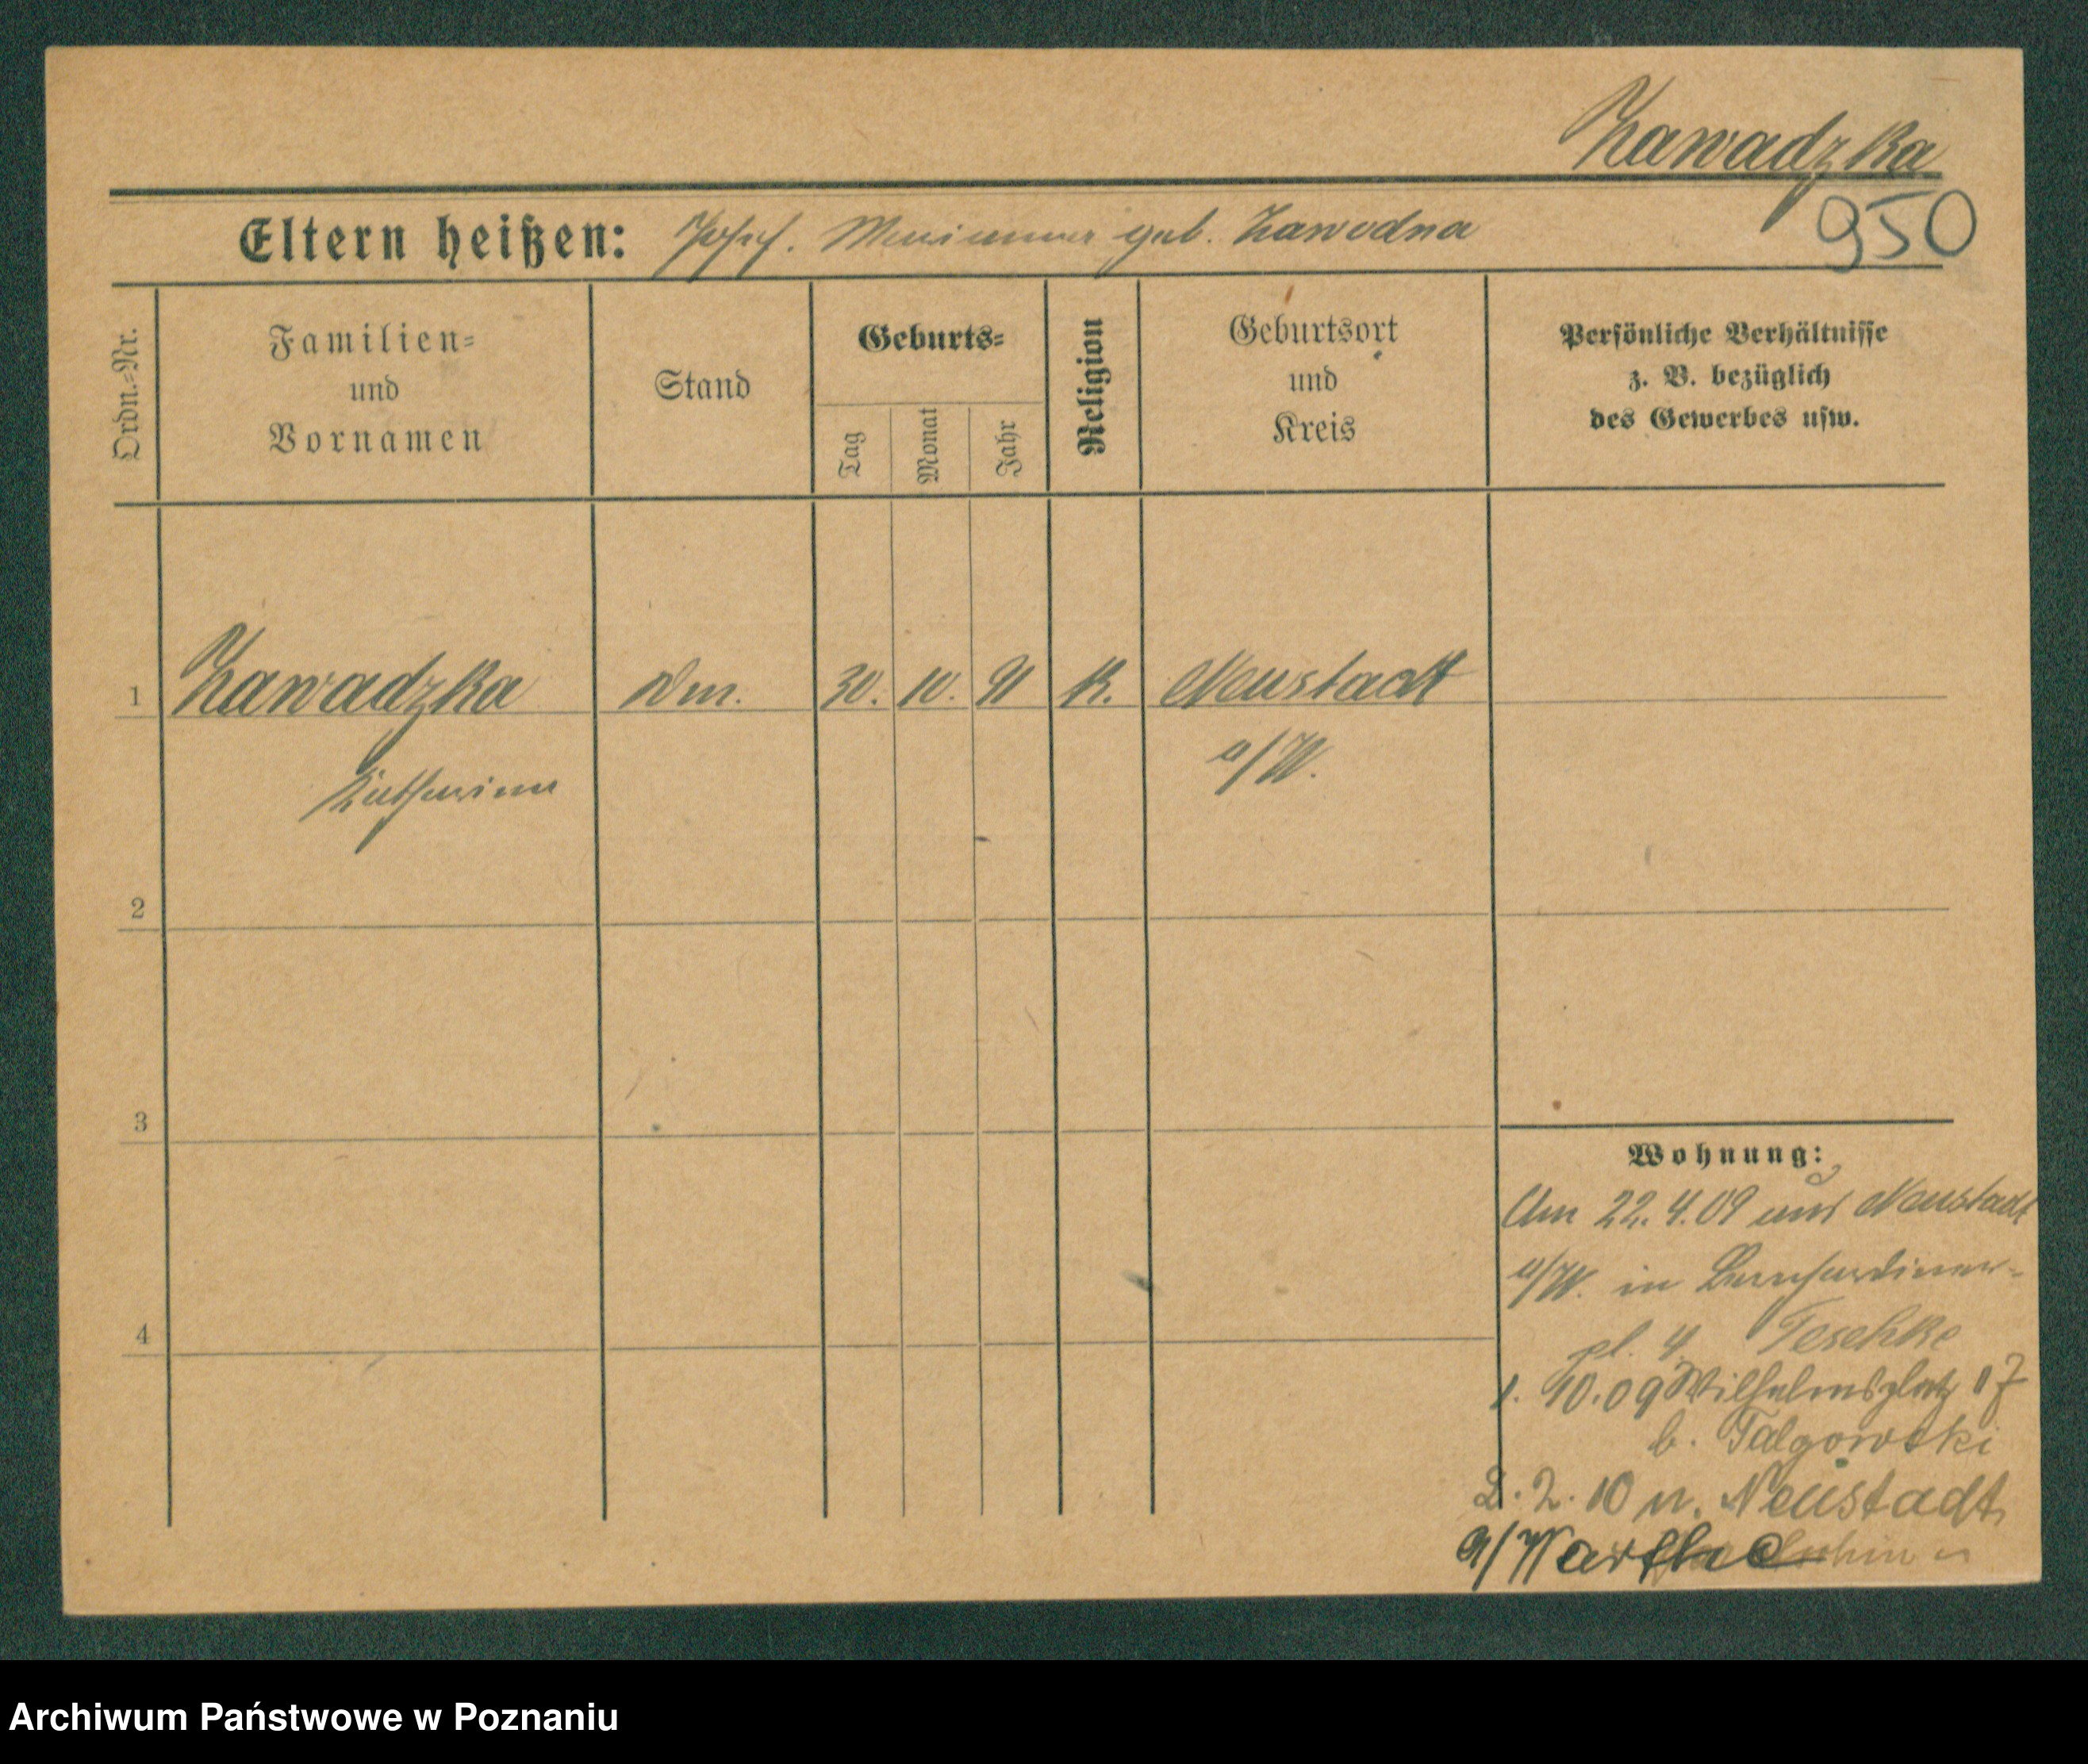 Zawadzka
950
Eltern heißen: Josef. Marianna geb. Zawodna
Ordn.=Nr.
Familien=
und
Vornamen
Stand
Geburts=
Tag
Monat
Jahr
Religion
Geburtsort
und
Kreis
Persönliche Verhältnisse
z. B. bezüglich
des Gewerbes usw.
1 Zawadzka Dm. 30. 10. 91 K. Neustadt
Katharina a/W.
2
3
4
Wohnung:
Am 22. 4. 09 aus Neustadt
a/W. in Bernhardiner-
pl. 4 Teschke
1. 10. 09 Wilhelmsplatz 17
b. Talgowski
2. 2. 10 n. Neustadt
a/Warthe
Archiwum Państwowe w Poznaniu